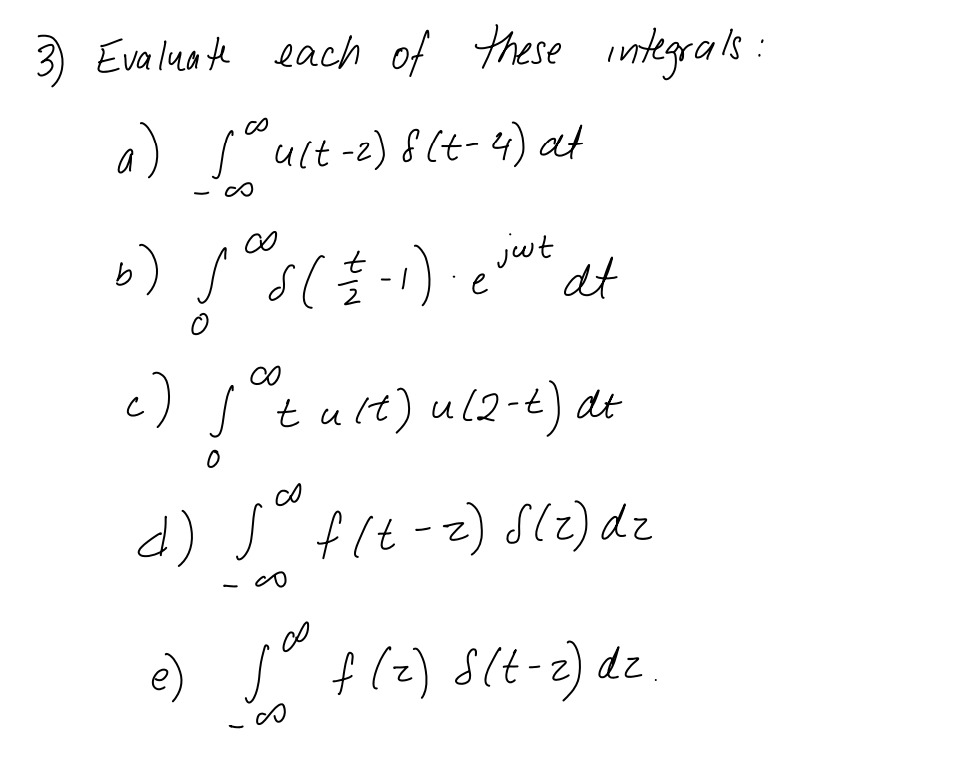 3) Evaluate each of these integrals :
a) ∫_{-∞}^{∞} u(t-2) δ(t-4) dt
b) ∫_{0}^{∞} δ(t/2 -1) · e^{jωt} dt
c) ∫_{0}^{∞} t u(t) u(2-t) dt
d) ∫_{-∞}^{∞} f(t-z) δ(z) dz
e) ∫_{-∞}^{∞} f(z) δ(t-z) dz.